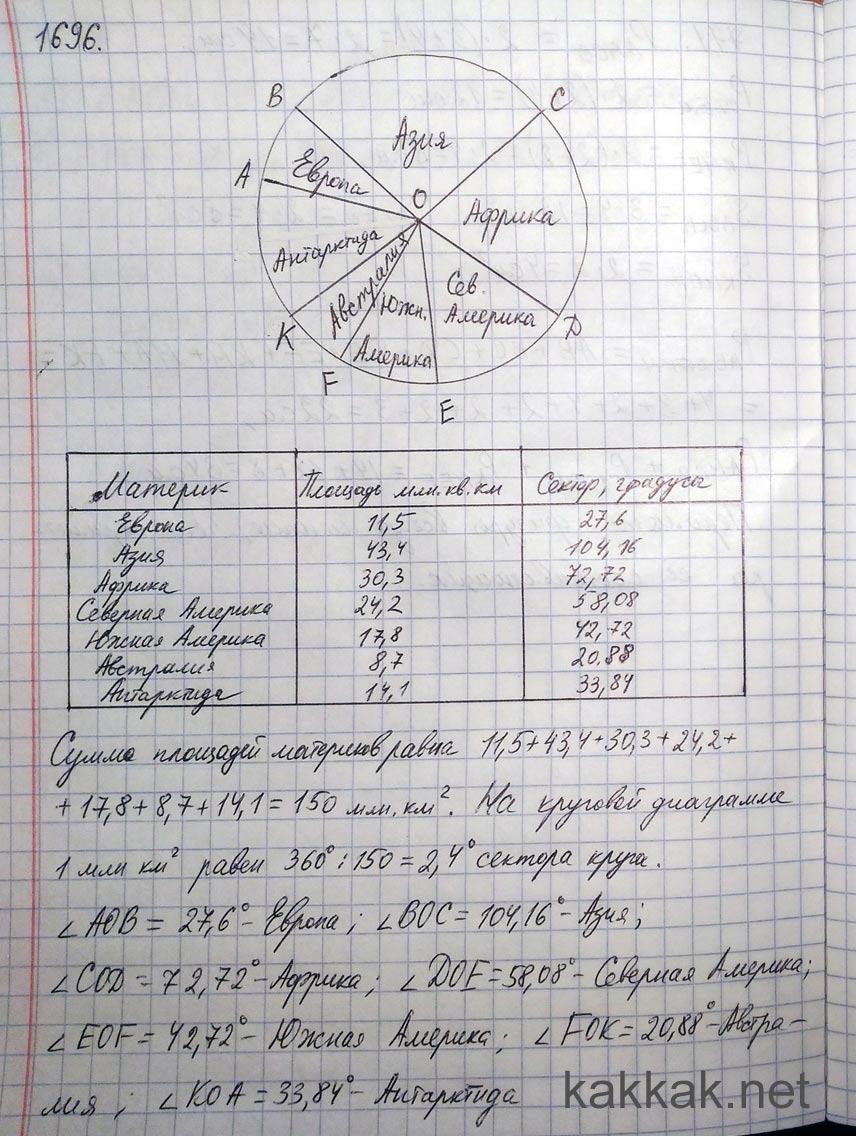 1696.
B
C
Азия
A
Европа
O
Африка
Антарктида
Австралия
Сев.
Америка
Южн.
Америка
K
D
F
E
Материк Площадь млн.кв.км Сектор, градусы
Европа 11,5 27,6
Азия 43,4 104,16
Африка 30,3 72,72
Северная Америка 24,2 58,08
Южная Америка 17,8 42,72
Австралия 8,7 20.88
Антарктида 14,1 33,84
Сумма площадей материков равна 11,5+43,4+30,3+24,2+
+17,8+8,7+14,1=150 млн.км². На круговой диаграмме
1 млн км² равен 360°:150=2,4° сектора круга.
∠AOB = 27,6° - Европа; ∠BOC=104,16° - Азия;
∠COD = 72,72° - Африка; ∠DOE=58,08° - Северная Америка;
∠EOF = 42,72° - Южная Америка; ∠FOK=20,88° - Австра-
лия; ∠KOA = 33,84° - Антарктида
kakkak.net